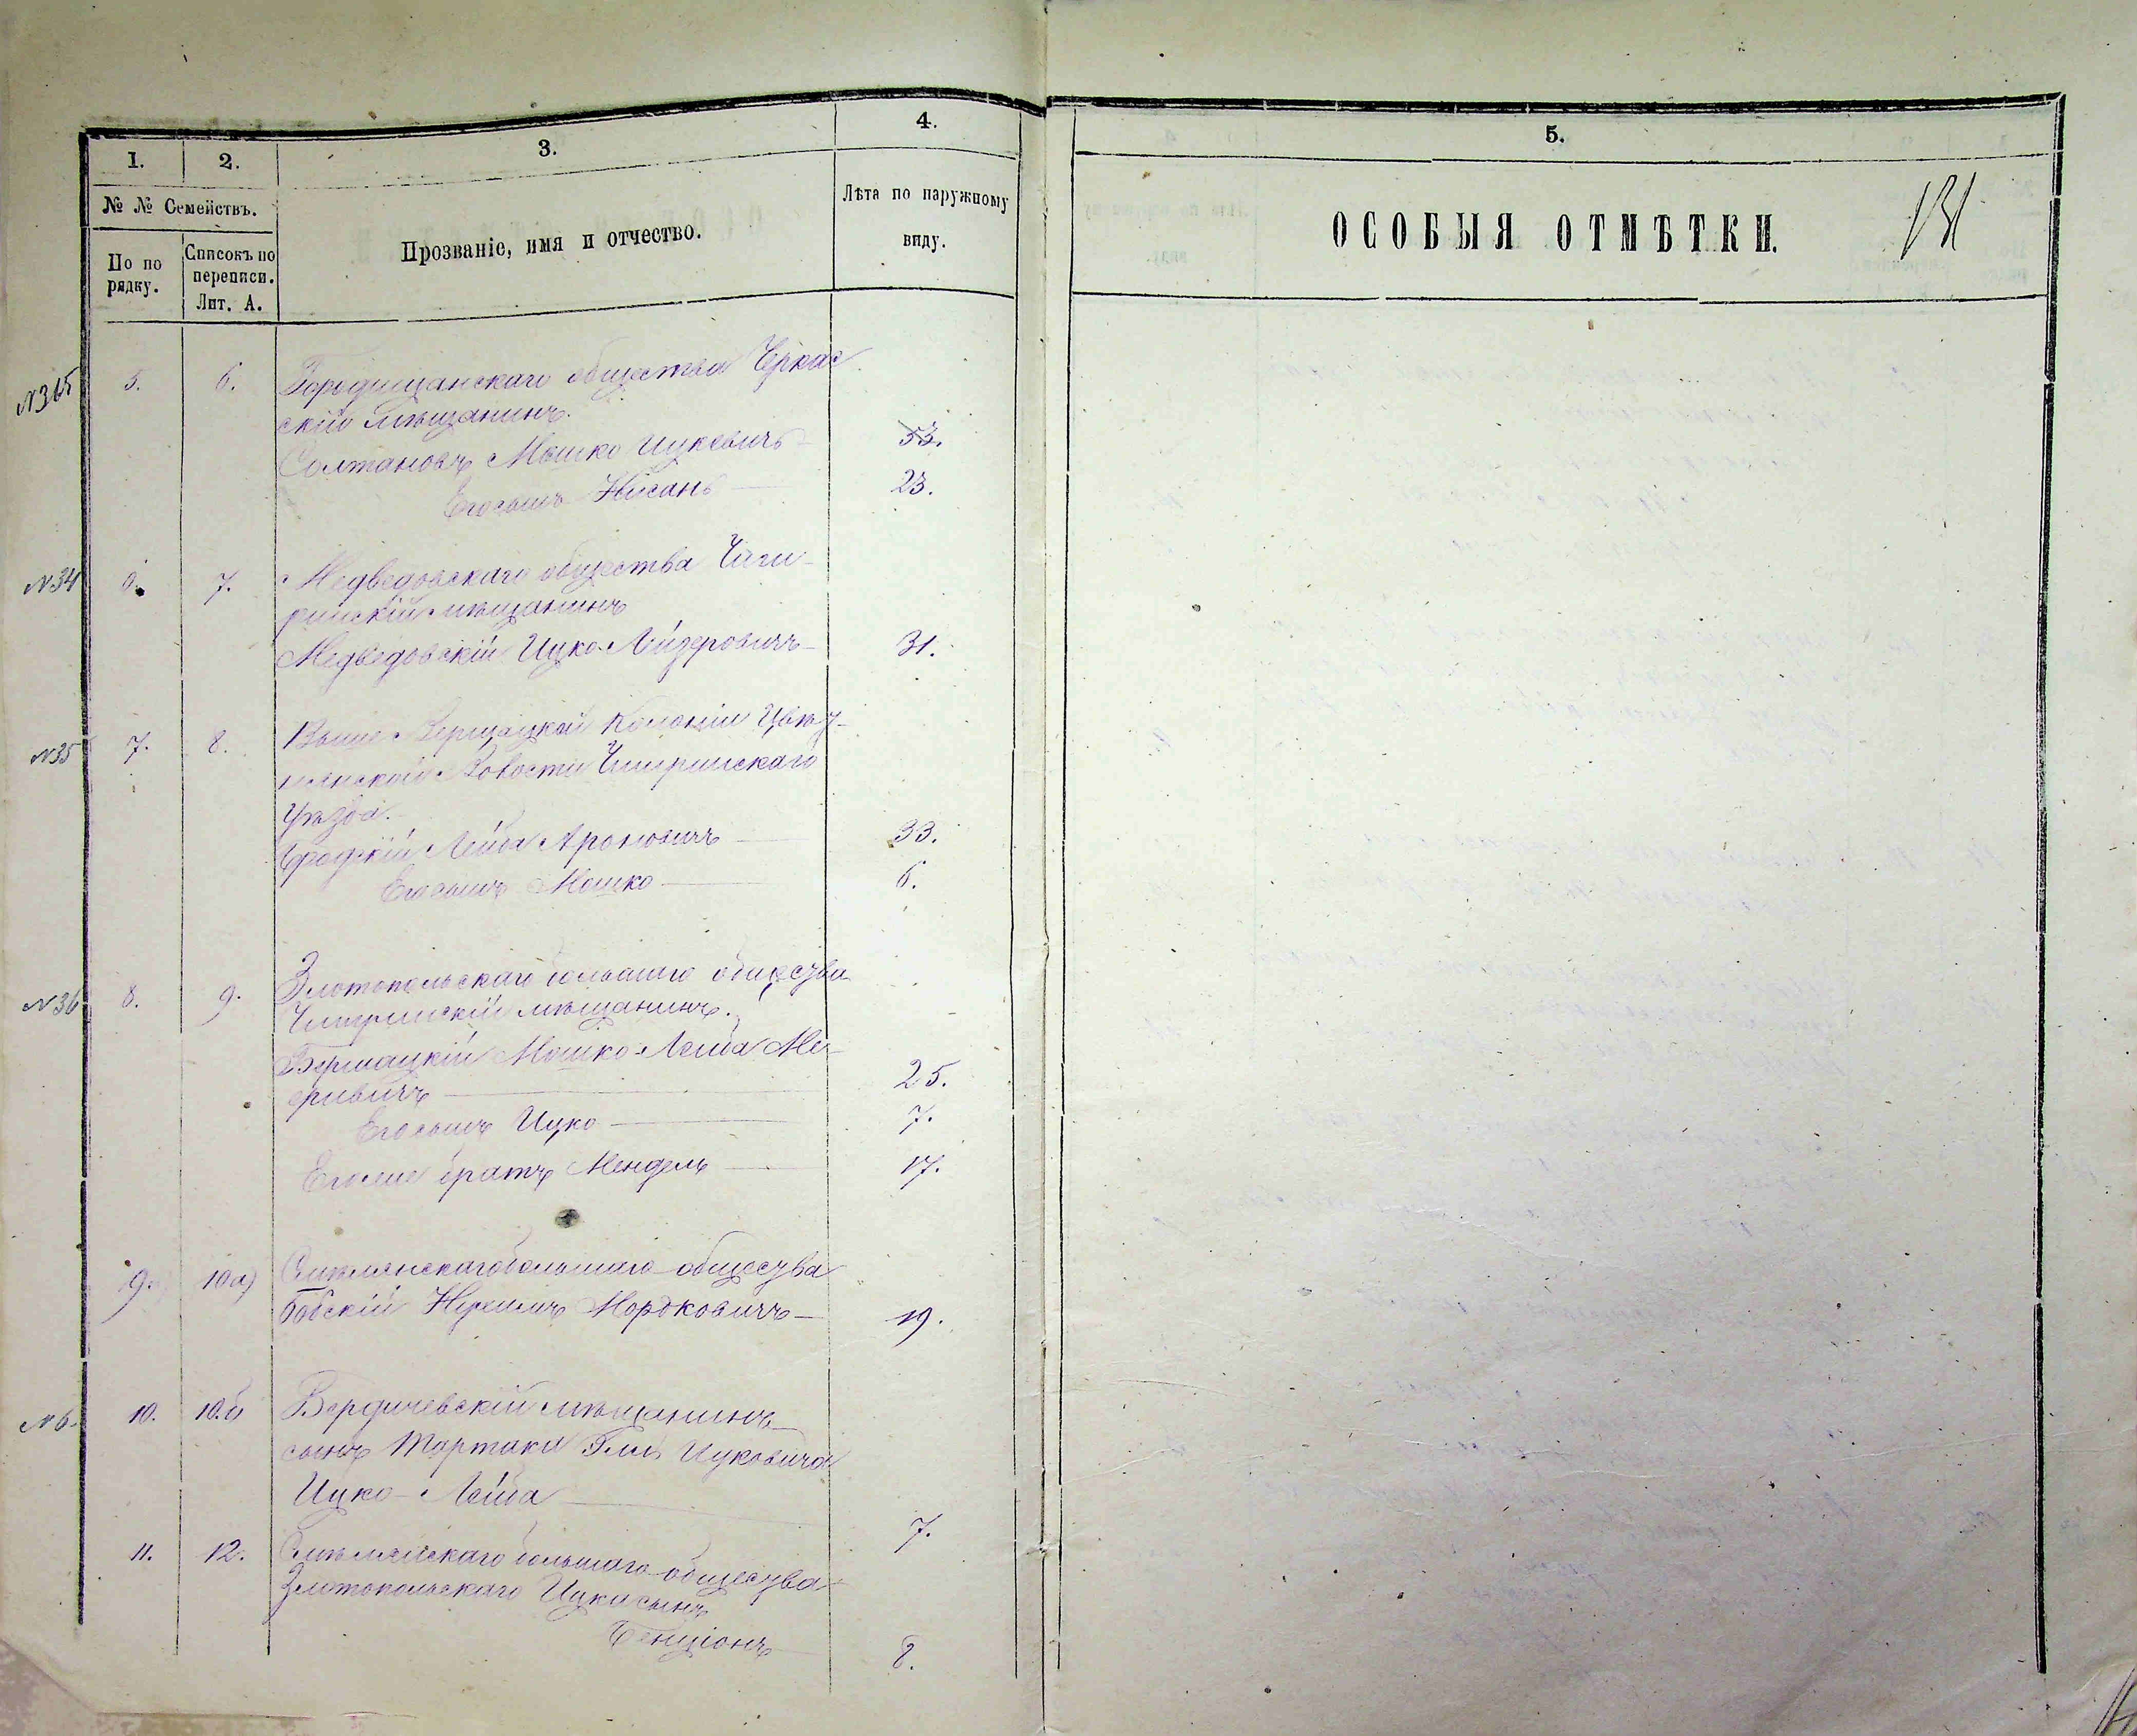 1.
2.
3.
4.
5.
№ № Семействъ.
По по рядку.
Списокъ по переписи. Лит. А.
Прозваніе, имя и отчество.
Лѣта по наружному виду.
ОСОБЫЯ ОТМѢТКИ.
131
5. 6. Городищанскаго общества Черкас
скій мѣщанинъ.
Солтановъ Мошко Ицковичъ 53.
Его сынъ Нисанъ 23.
N34 6. 7. Медведовскаго общества Чиги-
ринскій мѣщанинъ
Медведовскій Ицко Лейзеровичъ 31.
N35 7. 8. Выше Верещацкой Колоніи Цвѣт-
нянской Волости Чигиринскаго
Уѣзда.
Лейба Ароновичъ 33.
Его сынъ Мошко 6.
N36 8. 9. Златопольскаго большаго общества
Чигиринскій мѣщанинъ.
Мошко-Лейба Ме-
еровичъ 25.
Его сынъ Ицко 7.
Его же братъ Мендель 17.
9. 10а) Смѣлянскаго большаго общества
Бобскій Мордковичъ 19.
N6. 10. 10.б Бердичевскій мѣщанинъ
сынъ Тартака Ицковича
Ицко-Лейба 7.
11. 12. Смѣлянскаго большаго общества
Златопольскаго Ицки сынъ
Бенціонъ 8.